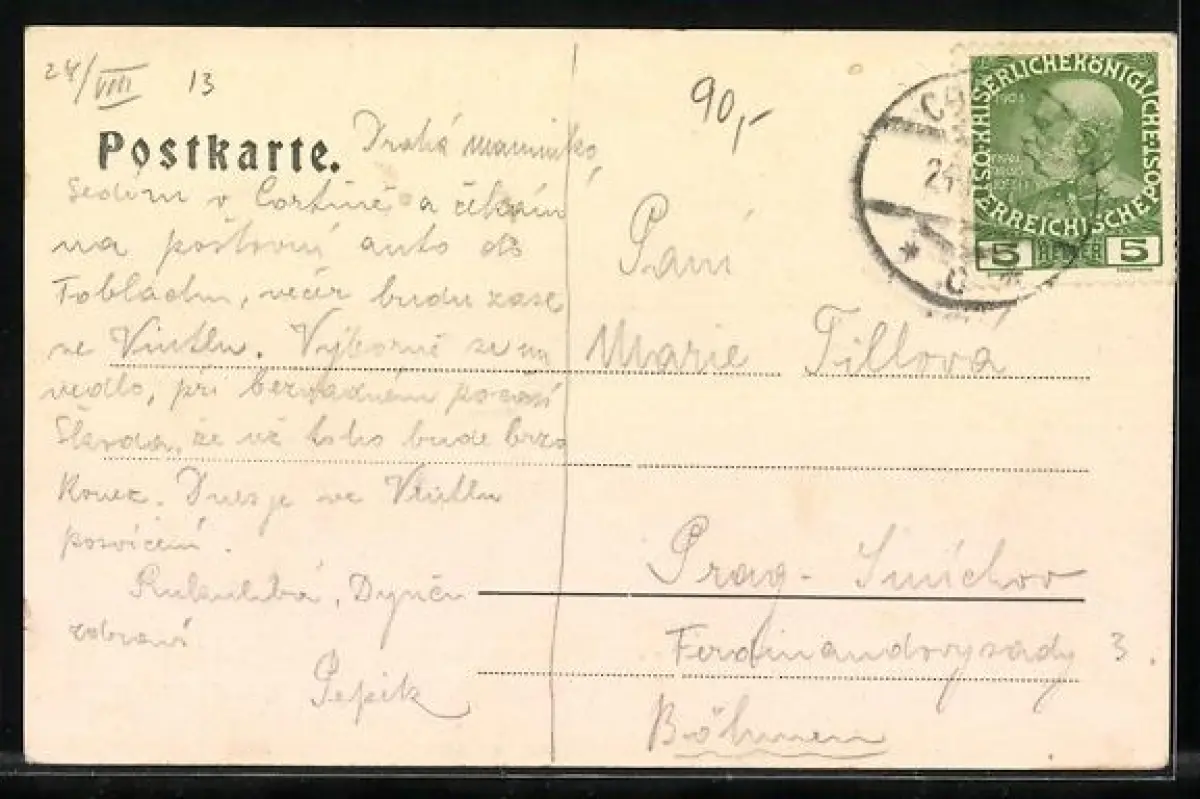 24/VIII 13
90,-
Postkarte.
Drahá maminko,
Sedím v Cortině a čekám
na poštovní auto do
Toblachu, večer budu zase
ve Vintlu. Výborně se mi
vedlo, při bezvadném počasí
Škoda, že už toho bude brzo
konec. Dnes je ve Vintlu
posvícení.
Pepík
Paní
Marie Tillova
Prag - Smíchov
Ferdinandovy sady 3.
Böhmen
KAISERLICHEKÖNIGLICHE ÖSTERREICHISCHE POST
1908
5 5